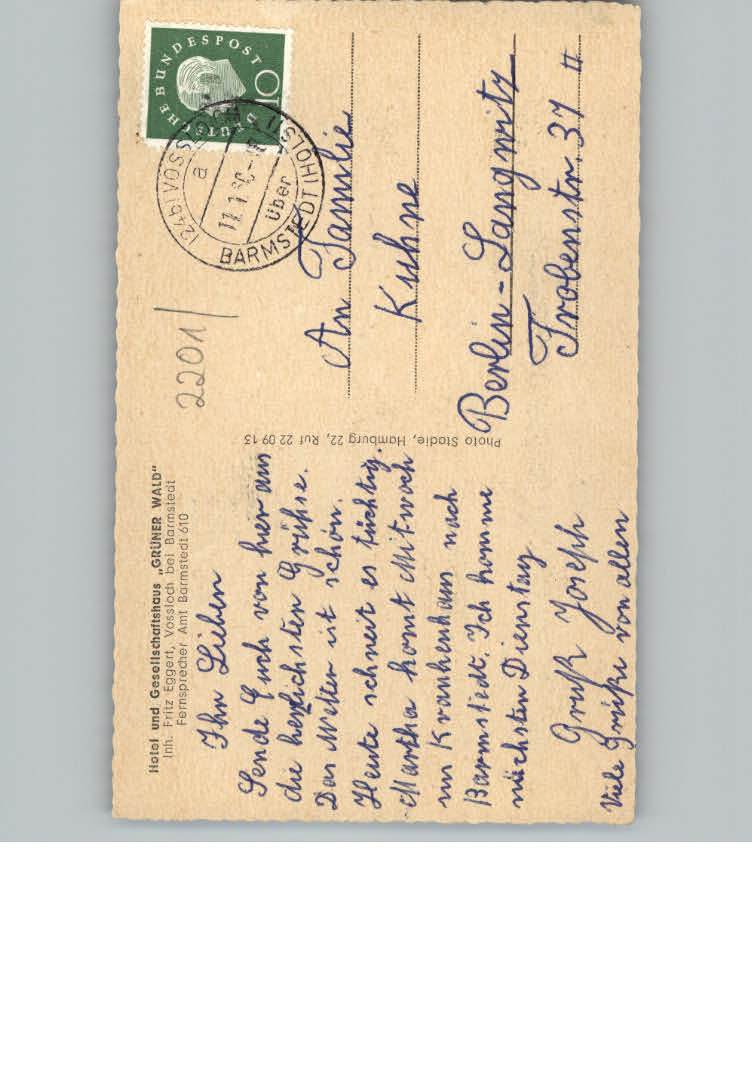 Hotel und Gesellschaftshaus „GRÜNER WALD"
Inh. Fritz Eggert, Vossloch bei Barmstedt
Fernsprecher Amt Barmstedt 610
Ihr Lieben
Sende Euch von hier aus
die herzlichsten Grüße.
Das Wetter ist schön.
Heute schneit es tüchtig.
Martha komt Mitwoch
ins Krankenhaus nach
Barmstedt. Ich komme
nächsten Dienstag
Gruß Joseph
Viele Grüße von allem
Photo Stadie, Hamburg 22, Ruf 22 09 13
2201/
DEUTSCHE BUNDESPOST
10
DEUTSCHE
(24b) VOSSLOCH
a
über
BARMSTEDT (HOLST)
An Familie
Kuhne
Berlin-Langwitz
Frobenstr. 37 II